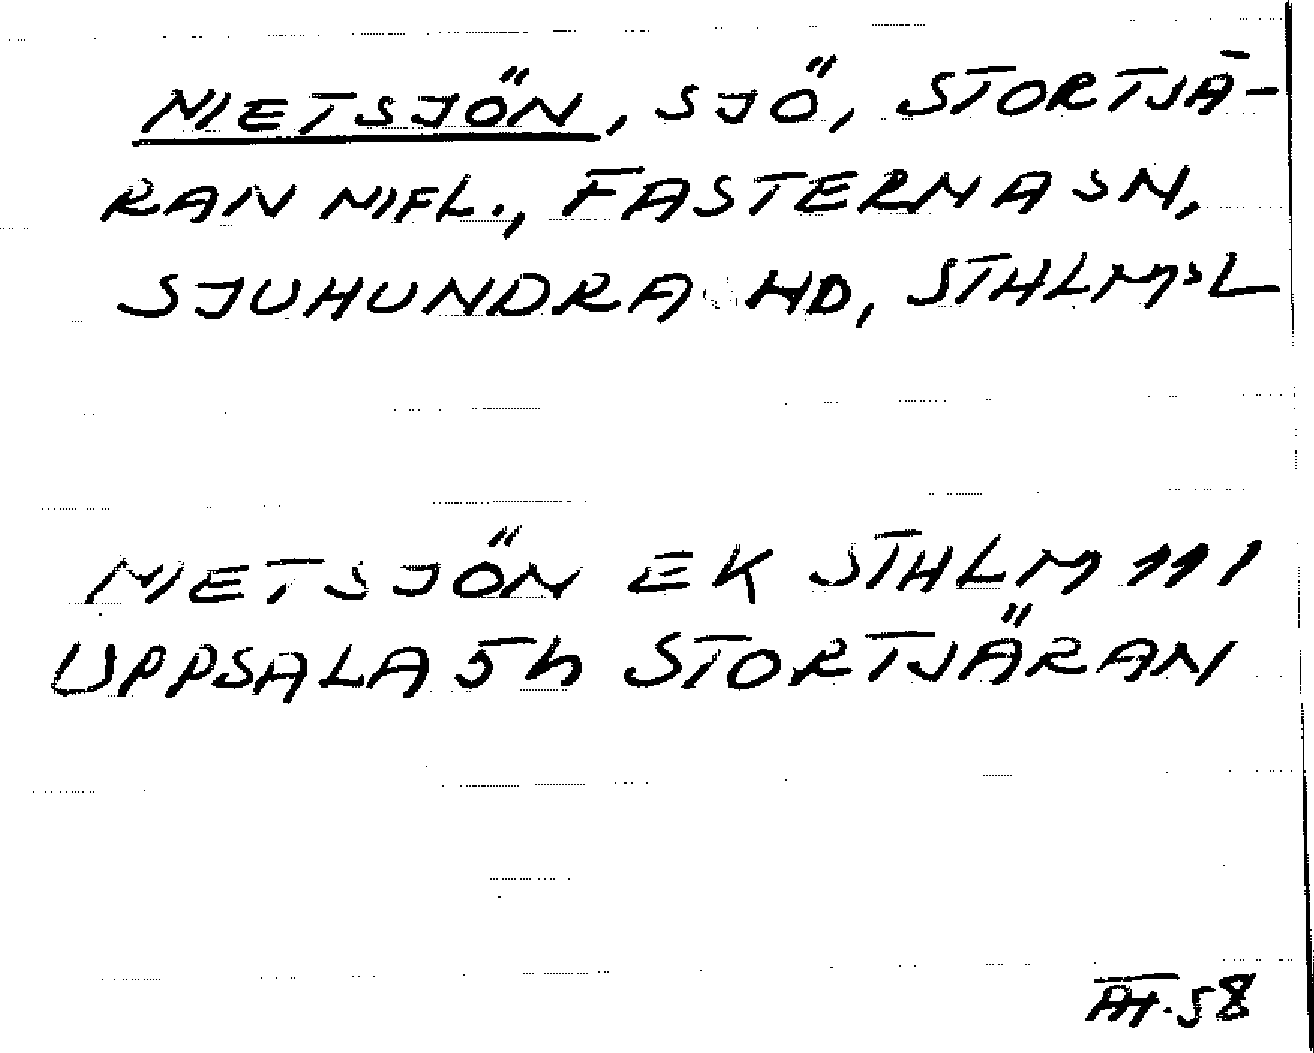 NIETSJÖN, SJÖ, STORTJÄ-
RAN NIFL., FASTERNA SN,
SJUHUNDRA HD, STHLMSL
NIETSJÖN EK STHLM 111
UPPSALA 5h STORTJÄRAN
AH.58